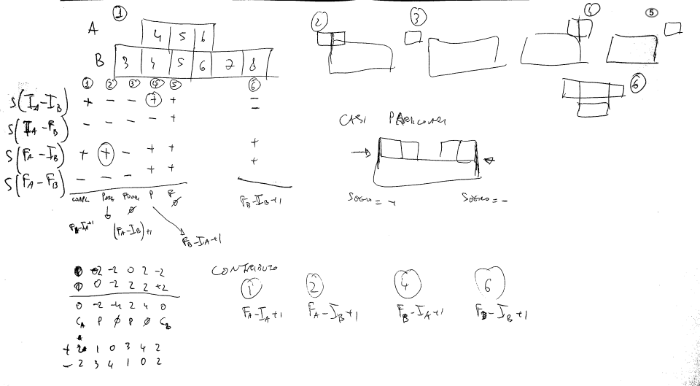 ①
A 4 5 6
B 3 4 5 6 7 8
② ③ ④ ⑤ ⑥
① ② ③ ④ ⑤ ⑥
S(I_A-I_B) + - - + + =
S(I_A-F_B) - - - - +
S(F_A-I_B) + + - + + +
S(F_A-F_B) - - - + + +
P ∅
F_B-I_B+1
(F_A-I_B)+1
F_B-I_A+1
CASI PARTICOLARI
SEGNO = - SEGNO = -
-2 -2 0 2 -2
0 -2 2 2 +2
0 -2 -4 2 4 0
C_A P ∅ P ∅ C_B
+ 2 1 0 3 4 2
- 2 3 4 1 0 2
CONTRIBUTO
① ② ④ ⑥
F_A-I_A+1 F_A-I_B+1 F_B-I_A+1 F_B-I_B+1